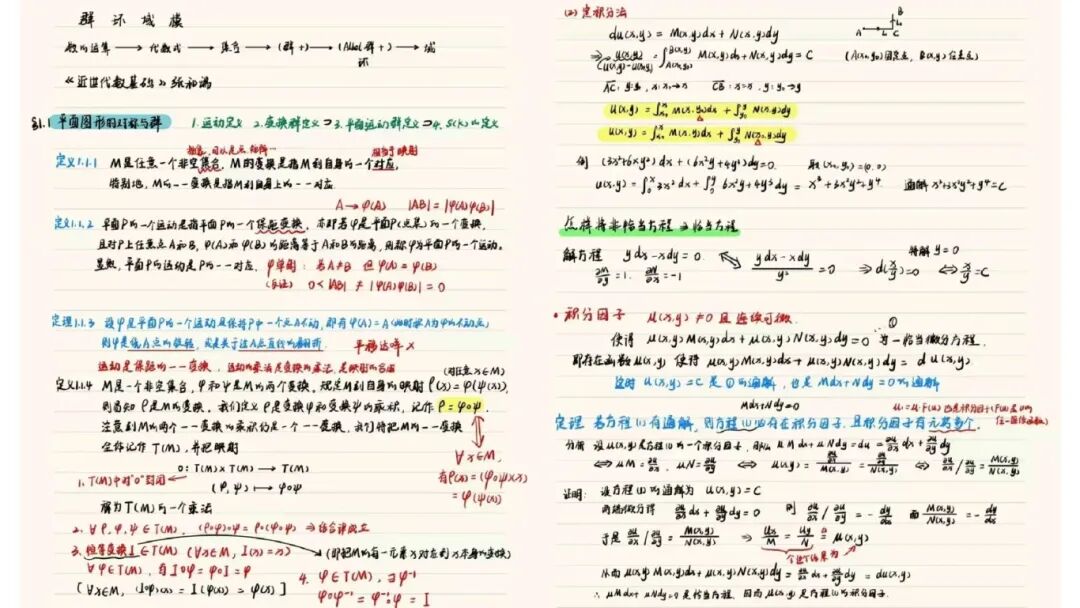 群 环 域 模
数的运算 → 代数式 → 集合 → (群+) → (Abel群+) → 域
环
《近世代数基础》张和瑞
§1.1 平面图形的对称与群 1.运动定义 2.变换群定义 ⊃ 3.平面运动群定义 ⊃ 4. S(K)的定义
定义1.1.1 M是任意一个非空集合,M的变换是指M到自身的一个对应,
特别地,M的一一变换是指M到自身上的一一对应
A→φ(A) |AB|=|φ(A)φ(B)|
定义1.1.2 平面P的一个运动是指平面P的一个保距变换,亦即若φ是平面P(点集)的一个变换,
且对P上任意点A和B,φ(A)和φ(B)的距离等于A和B的距离,则称φ为平面P的一个运动。
显然,平面P的运动是P的一一对应. φ单射:若A≠B 但φ(A)=φ(B)
(反证) 0<|AB| ≠ |φ(A)φ(B)|=0
定理1.1.3 设φ是平面P的一个运动且保持P中一个点A不动,即有φ(A)=A(此时称A为φ的不动点)
则φ是绕A点的旋转,或是关于过A点直线的翻折. 平移达咩×
运动是保距的一一变换,运动的乘法是变换的乘法,是映射的合成
(对任意x∈M)
定义1.1.4 M是一个非空集合,φ和ψ是M的两个变换,规定M到自身的映射 ρ(x)=φ(ψ(x)),
则易知ρ是M的变换,我们定义ρ是变换φ和变换ψ的乘积,记作ρ=φ∘ψ.
注意到M的两个一一变换的乘积仍是一个一一变换,我们将把M的一一变换
全体记作T(M),并把映射
∀x∈M,
∘:T(M)×T(M) → T(M)
有ρ(x)=(φ∘ψ)(x)
1. T(M)中对"∘"封闭
(φ,ψ) ↦ φ∘ψ
=φ(ψ(x))
称为T(M)的一个乘法
2. ∀ρ,φ,ψ∈T(M), (ρ∘φ)∘ψ=ρ∘(φ∘ψ) ⇒ 结合律成立
3. 恒等变换I∈T(M) (∀x∈M, I(x)=x) (即把M的每一元素x对应到x本身的变换)
∀φ∈T(M),有I∘φ=φ∘I=φ
4. φ∈T(M), ∃φ⁻¹
[∀x∈M, (I∘φ)(x)=I(φ(x))=φ(x)]
φ∘φ⁻¹=φ⁻¹∘φ=I
(2) 定积分法
du(x,y)=M(x,y)dx+N(x,y)dy
⇒ u(x,y)-u(x₀,y₀)=∫_{A(x₀,y₀)}^{B(x,y)} M(x,y)dx+N(x,y)dy=C (A(x₀,y₀)固定点,B(x,y)任意点)
AC: y=y₀, x:x₀→x CB: x=x, y:y₀→y
u(x,y)=∫_{x₀}^{x} M(x,y₀)dx+∫_{y₀}^{y} N(x,y)dy
u(x,y)=∫_{x₀}^{x} M(x,y)dx+∫_{y₀}^{y} N(x₀,y)dy
例 (3x²+6xy²)dx+(6x²y+4y³)dy=0. 取(x₀,y₀)=(0,0)
u(x,y)=∫₀ˣ 3x²dx+∫₀ʸ 6x²y+4y³dy=x³+3x²y²+y⁴ 通解 x³+3x²y²+y⁴=C
怎样将非恰当方程⇒恰当方程
特解 y=0
解方程 ydx-xdy=0. (ydx-xdy)/y²=0 ⇒ d(x/y)=0 ⇔ x/y=C
∂M/∂y=1. ∂N/∂x=-1
• 积分因子 μ(x,y)≠0 且连续可微.
使得 μ(x,y)M(x,y)dx+μ(x,y)N(x,y)dy=0 ① 为一恰当微分方程.
即存在函数u(x,y) 使得 μ(x,y)M(x,y)dx+μ(x,y)N(x,y)dy=du(x,y)
这时 u(x,y)=C 是①的通解,也是Mdx+Ndy=0的通解
Mdx+Ndy=0
定理 若方程(1)有通解,则方程(1)必存在积分因子,且积分因子有无穷多个.
分析 设μ(x,y)是方程(1)的一个积分因子,则 μMdx+μNdy=du=∂u/∂x dx+∂u/∂y dy
⇔ μM=∂u/∂x, μN=∂u/∂y ⇔ μ(x,y)=(∂u/∂x)/M(x,y)=(∂u/∂y)/N(x,y) ⇔ ∂u/∂x / ∂u/∂y=M(x,y)/N(x,y)
证明: 设方程(1)的通解为 u(x,y)=C
两边微分得 ∂u/∂x dx+∂u/∂y dy=0 则 ∂u/∂x / ∂u/∂y=-dy/dx 而 M(x,y)/N(x,y)=-dy/dx
于是 ∂u/∂x / ∂u/∂y=M(x,y)/N(x,y) ⇒ Ux/M=Uy/N=μ(x,y)
从而 μ(x,y)M(x,y)dx+μ(x,y)N(x,y)dy=∂u/∂x dx+∂u/∂y dy=du(x,y)
∴ μMdx+μNdy=0是恰当方程. 因而μ(x,y)是方程(1)的积分因子.